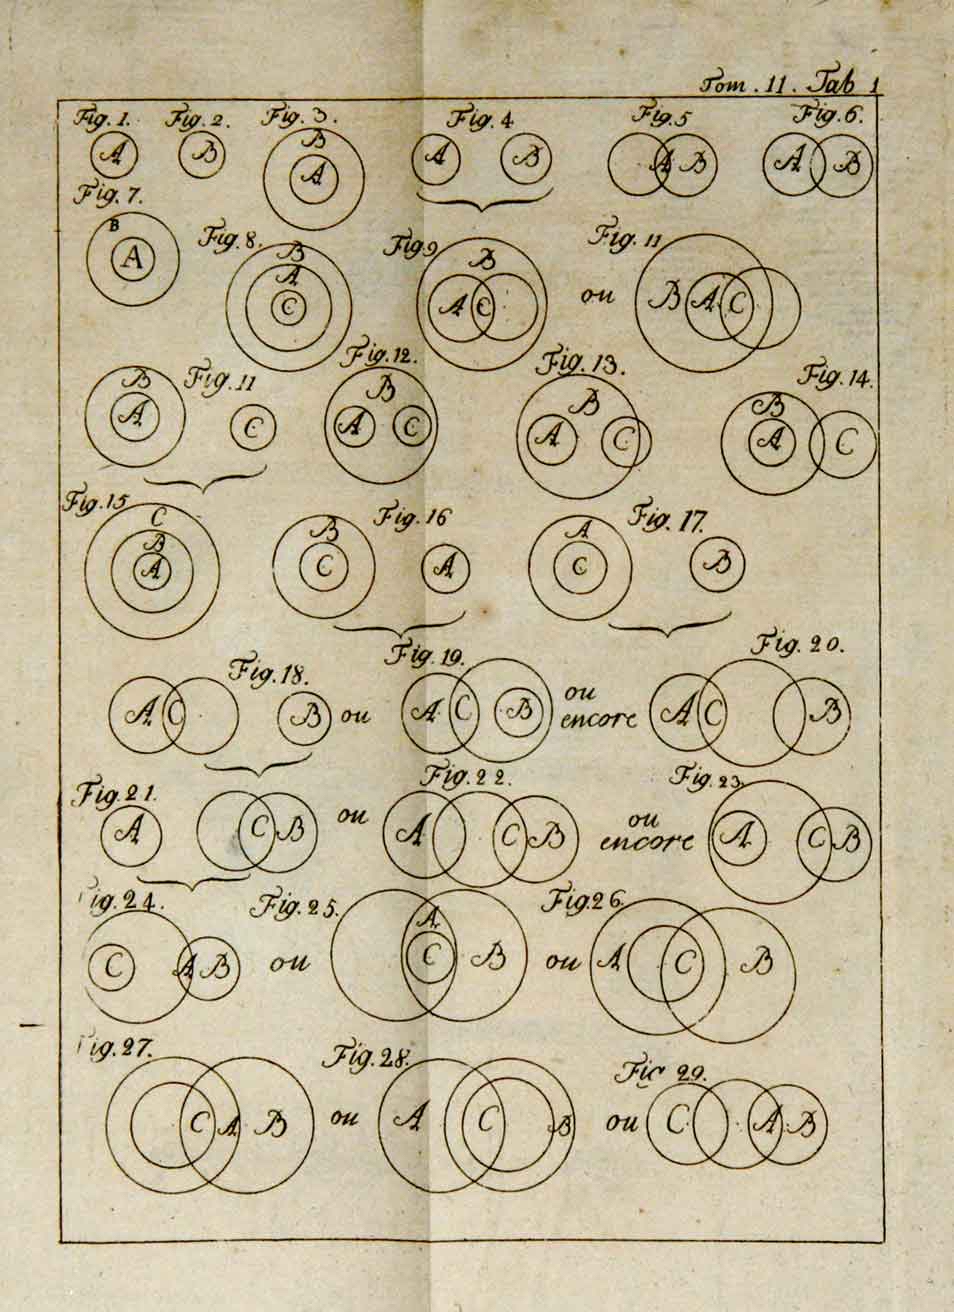 Tom. 11. Tab 1
Fig. 1. Fig. 2. Fig. 3. Fig. 4 Fig. 5 Fig. 6.
A B B A A B A B A B
Fig. 7. Fig. 8. Fig. 9 Fig. 11
B A
B A C
B A C ou B A C
Fig. 11 Fig. 12. Fig. 13. Fig. 14.
B A C B A C B A C B A C
Fig. 15 Fig. 16 Fig. 17.
C B A B C A A C B
Fig. 18. Fig. 19. Fig. 20.
A C B ou A C B ou encore A C B
Fig. 21. Fig. 22. Fig. 23.
A C B ou A C B ou encore A C B
ig. 24. Fig. 25. Fig. 26.
C A B ou A C B ou A C B
ig. 27. Fig. 28. Fig 29.
C A B ou A C B ou C A B